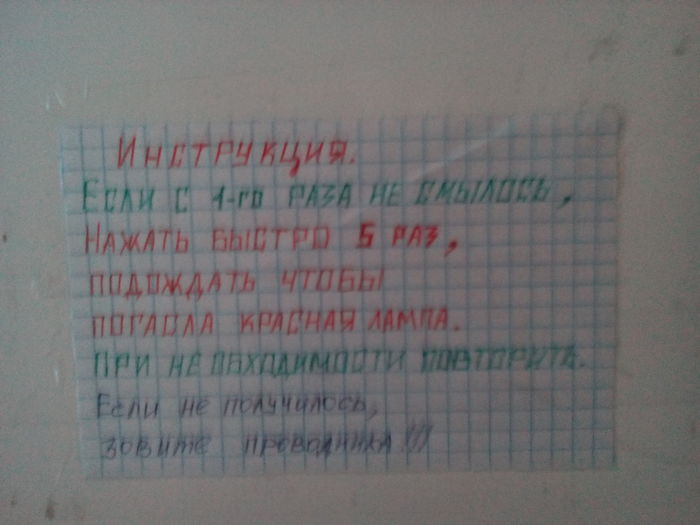 Инструкция.
Если с 1-го раза не смылось,
Нажать быстро 5 раз,
подождать чтобы
погасла красная лампа.
При необходимости повторить.
Если не получилось,
зовите проводника!!!